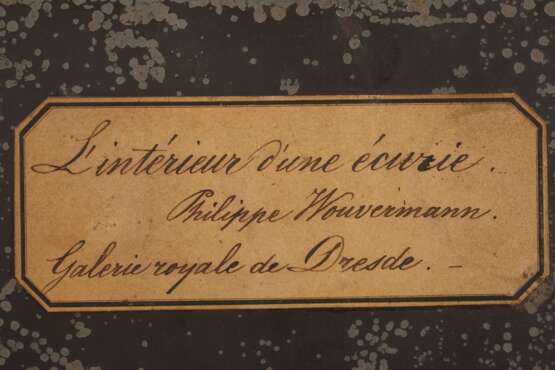 L'intérieur d'une écurie.
Philippe Wouvermann.
Galerie royale de Dresde. –